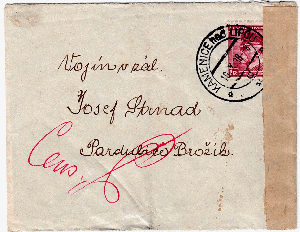 KAMENICE nad LIPOU
Vojín v zál.
Josef Strnad
Cens.
Pardubice Brožík.